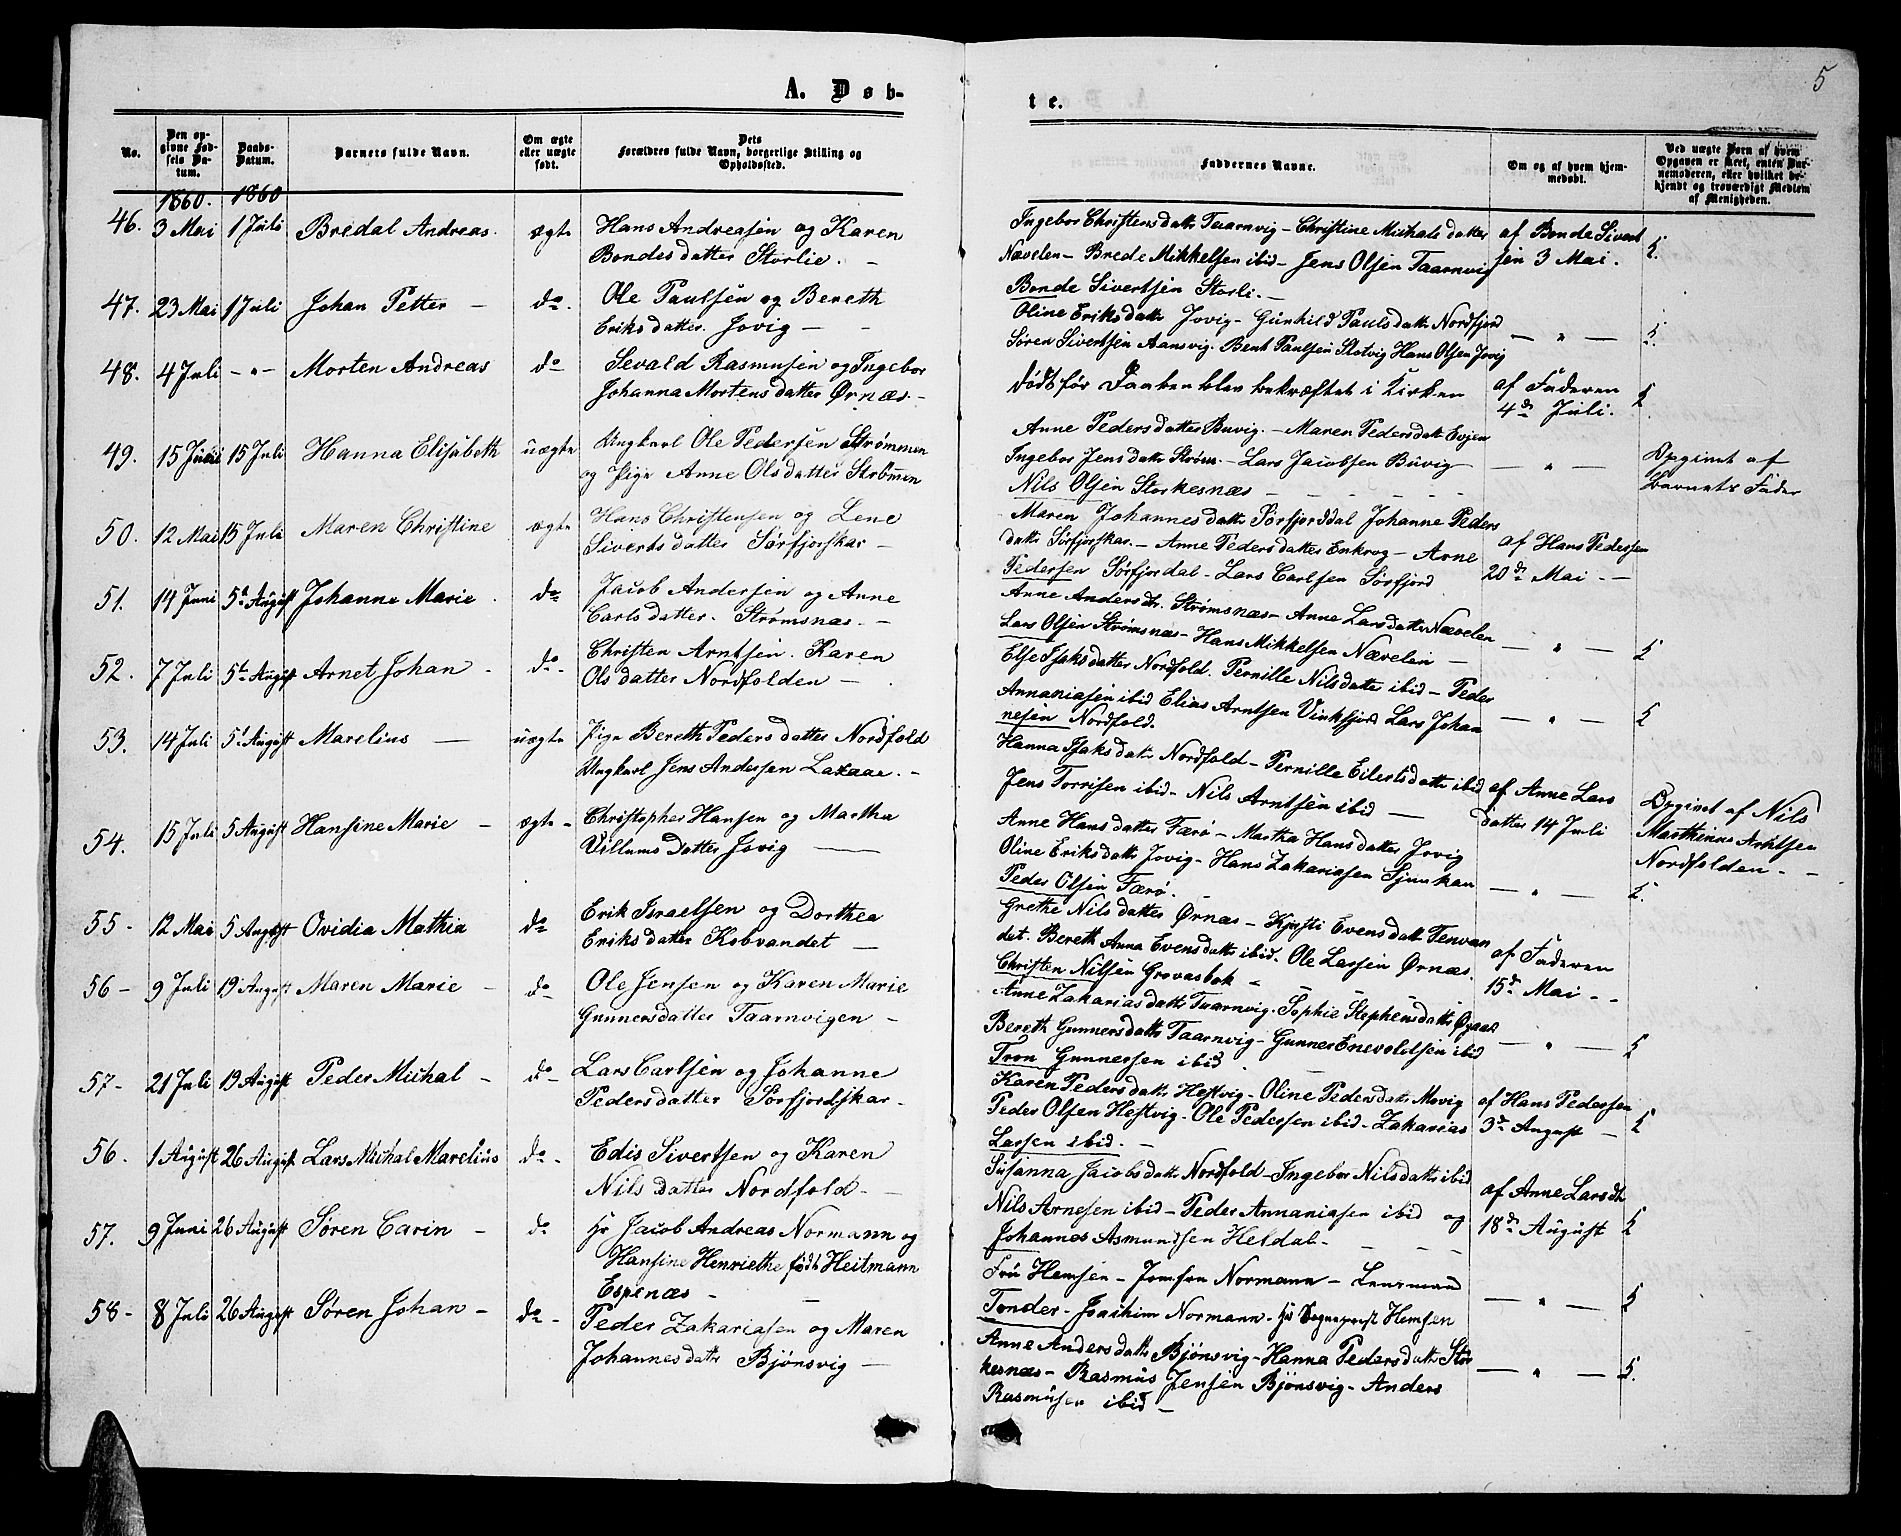 5
A. Døb-
te.
No.
Den op-
givne Fød-
sels Da-
tum.
Daabs-
Datum.
Barnets fulde Navn.
Om ægte
eller uægte
født.
Dets
Forældres fulde Navn, borgerlige Stilling og
Opholdssted.
Faddernes Navne.
Om og af hvem hjem-
medøbt.
Ved uægte Børn af hvem
Opgaven er skeet, enten Bar-
nemoderen, eller hvilket be-
kjendt og troværdigt Medlem
af Menigheden.
1860. 1860
46. 3 Mai 1 Juli Bredal Andreas. ægte Hans Andreasen og Karen
Bondesdatter Storlie. -
Ingebor Christensdatt Taarnvig - Christine Michals datter
Nævelen - Brede Mikkelsen ibid - Jens Olsen Taarnvig
Bonde Sivertsen Storli. -
af Bonde Sivert
sen 3 Mai.
47. 23 Mai 1 Juli Johan Petter - do. Ole Paulsen og Bereth
Eriksdatter Jovig - -
Oline Eriksdatt Jovig - Gunhild Paulsdatt Nordfjord
Søren Sivertsen Aansvig. Bent Paulsen Slotvig Hans Olsen Jovig
- " -
48. 4 Juli - " - Morten Andreas do Sevald Rasmusen og Ingebor
Johanna Mortensdatter Ørnæs -
død før Daaben blev bekræftet i Kirken
af Faderen
4de Juli.
49. 15 Juni 15 Juli Hanna Elisabeth uægte Ungkarl Ole Pedersen Strømmen
og Pige Anne Olsdatter Strømmen
Anne Pedersdatter Buvig. - Maren Pedersdatt Evjen
Ingebor Jensdatt Strøm. - Lars Jacobsen Buvig
Nils Olsen Storkesnæs - - - - -
- " -
Opgivet af
barnets Fader
50. 12 Mai 15 Juli Maren Christine ægte Hans Christensen og Lene
Sivertsdatter Sørfjorskar -
Maren Johannesdatt Sørfjorddal Johanne Peders
datt Sørfjorskar. - Anne Pedersdatter Enkrog - Arne
Pedersen Sørfjordal - Lars Carlsen Sørfjord
af Hans Pedersen
20de Mai. -
51. 14 Juni 5te August Johanne Marie. do Jacob Andersen og Anne
Carlsdatter. Strømsnæs. -
Anne Andersdr. Strømsnæs - Anne Larsdatter Nævelen
Lars Olsen Strømsnæs - Hans Mikkelsen Nævelen -
- " -
52. 7 Juli 5te August Arnet Johan - do - Christen Arntsen. Karen
Olsdatter Nordfolden - .
Else Isaksdatter Nordfold. Pernille Nilsdatter ibid - Peder
Annaniasen ibid Elias Arntsen Vinkfjord Lars Johan
nesen Nordfold.
- " -
53. 14 Juli 5te August Marelius - uægte Pige Bereth Pedersdatter Nordfold
Ungkarl Jens Andersen Laxaae. -
Hanna Isaksdatt Nordfold - Pernille Eilertsdatter ibid
Jens Torrisen ibid - Nils Arntsen ibid -
af Anne Lars
datter 14 Juli
Opgivet af Nils
Marthinus Arntsen
Nordfolden - -
54. 15 Juli 5 August Hansine Marie - ægte - Christopher Hansen og Martha
Villumsdatter Jovig -
Anne Hansdatter Færø - Martha Hansdatter Jovig
Oline Eriksdatt Jovig - Hans Zakariasen Sjunkan
Peder Olsen Færø. -
- " -
55 - 12 Mai 5 August Ovidia Mathia do Erik Israelsen og Dorthea
Eriksdatter Kobvandet -
Grethe Nilsdatter Ørnæs - Kjersti Evensdatt Tenvan
det. Bereth Anna Evensdatt ibid. Ole Larsen Ørnæs.
Christen Nilsen Grovasbok -
af Faderen
15de Mai - -
56 - 9 Juli 19 August Maren Marie - do - Ole Jensen og Karen Marie
Gunnersdatter Taarnvigen -
Anne Zakariasdatt Taarnvig. Sophie Stephensdatt
Bereth Gunnersdatt Taarnvig - Gunner Enevoldsen ibid
Tron Gunnersen ibid
- " -
57 - 21 Juli 19 August Peder Michal - do - Lars Carlsen og Johanne
Pedersdatter Sørfjordskar -
Karen Pedersdatt Hestvig - Oline Pedersdatt Movig
Peder Olsen Hestvig - Ole Pedersen ibid - Zakarias
Larsen ibid. -
af Hans Pedersen
3de August -
56. 1 August 26 August Lars Michal Marelius do - Edis Sivertsen og Karen
Nilsdatter Nordfold - -
Susanna Jacobsdatt Nordfold - Ingebor Nilsdatt ibid
Nils Arnesen ibid - Peder Annaniasen ibid og
Johannes Asmundsen Heldal - - - -
af Anne Larsdtr
18de August
57. 9 Juni 26 August Søren Carin - do - Hr Jacob Andreas Normann og
Hansine Henriethe født Heitmann
Espenæs - -
Fru Hemsen - Jomfru Normann - Lensmand
Tonder - Joachim Normann - Hr Sognepræst Hemsen
- " -
58 - 8 Juli 26 August Søren Johan - do - Peder Zakariasen og Maren
Johannesdatt Bjønsvig -
Anne Andersdatt Bjønsvig - Hanna Pedersdatt Stor
kesnæs - Rasmus Jensen Bjønsvig - Anders
Rasmusen ibid -
- " -